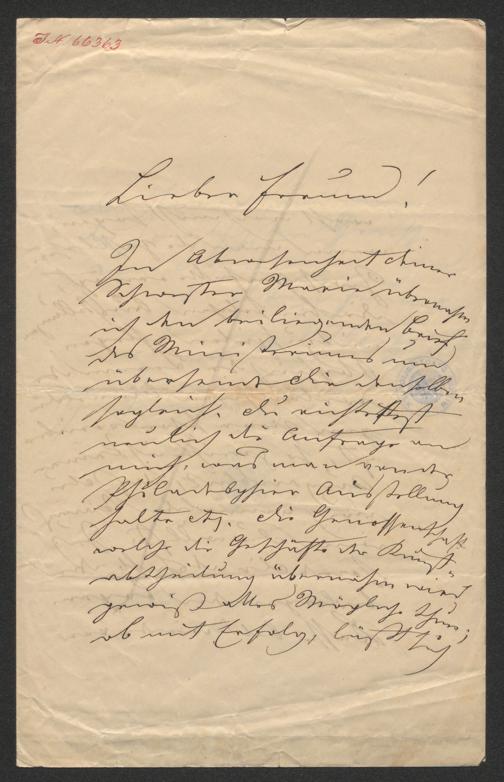 IN 66363
Lieber Freund!
In Abwesenheit Deiner
Schwester Marie übernahm
ich den beiliegenden Brief
des Ministeriums und
übersende Dir denselben
sogleich. Du richtetest
neulich die Anfrage an
mich, was man von der
Philadelphier Ausstellung
halte etz. Die Genossenschaft
welche die Geschäfte der Kunst
abtheilung übernahm wird
gewiß alles Mögliche thun;
ob mit Erfolg, läßt sich